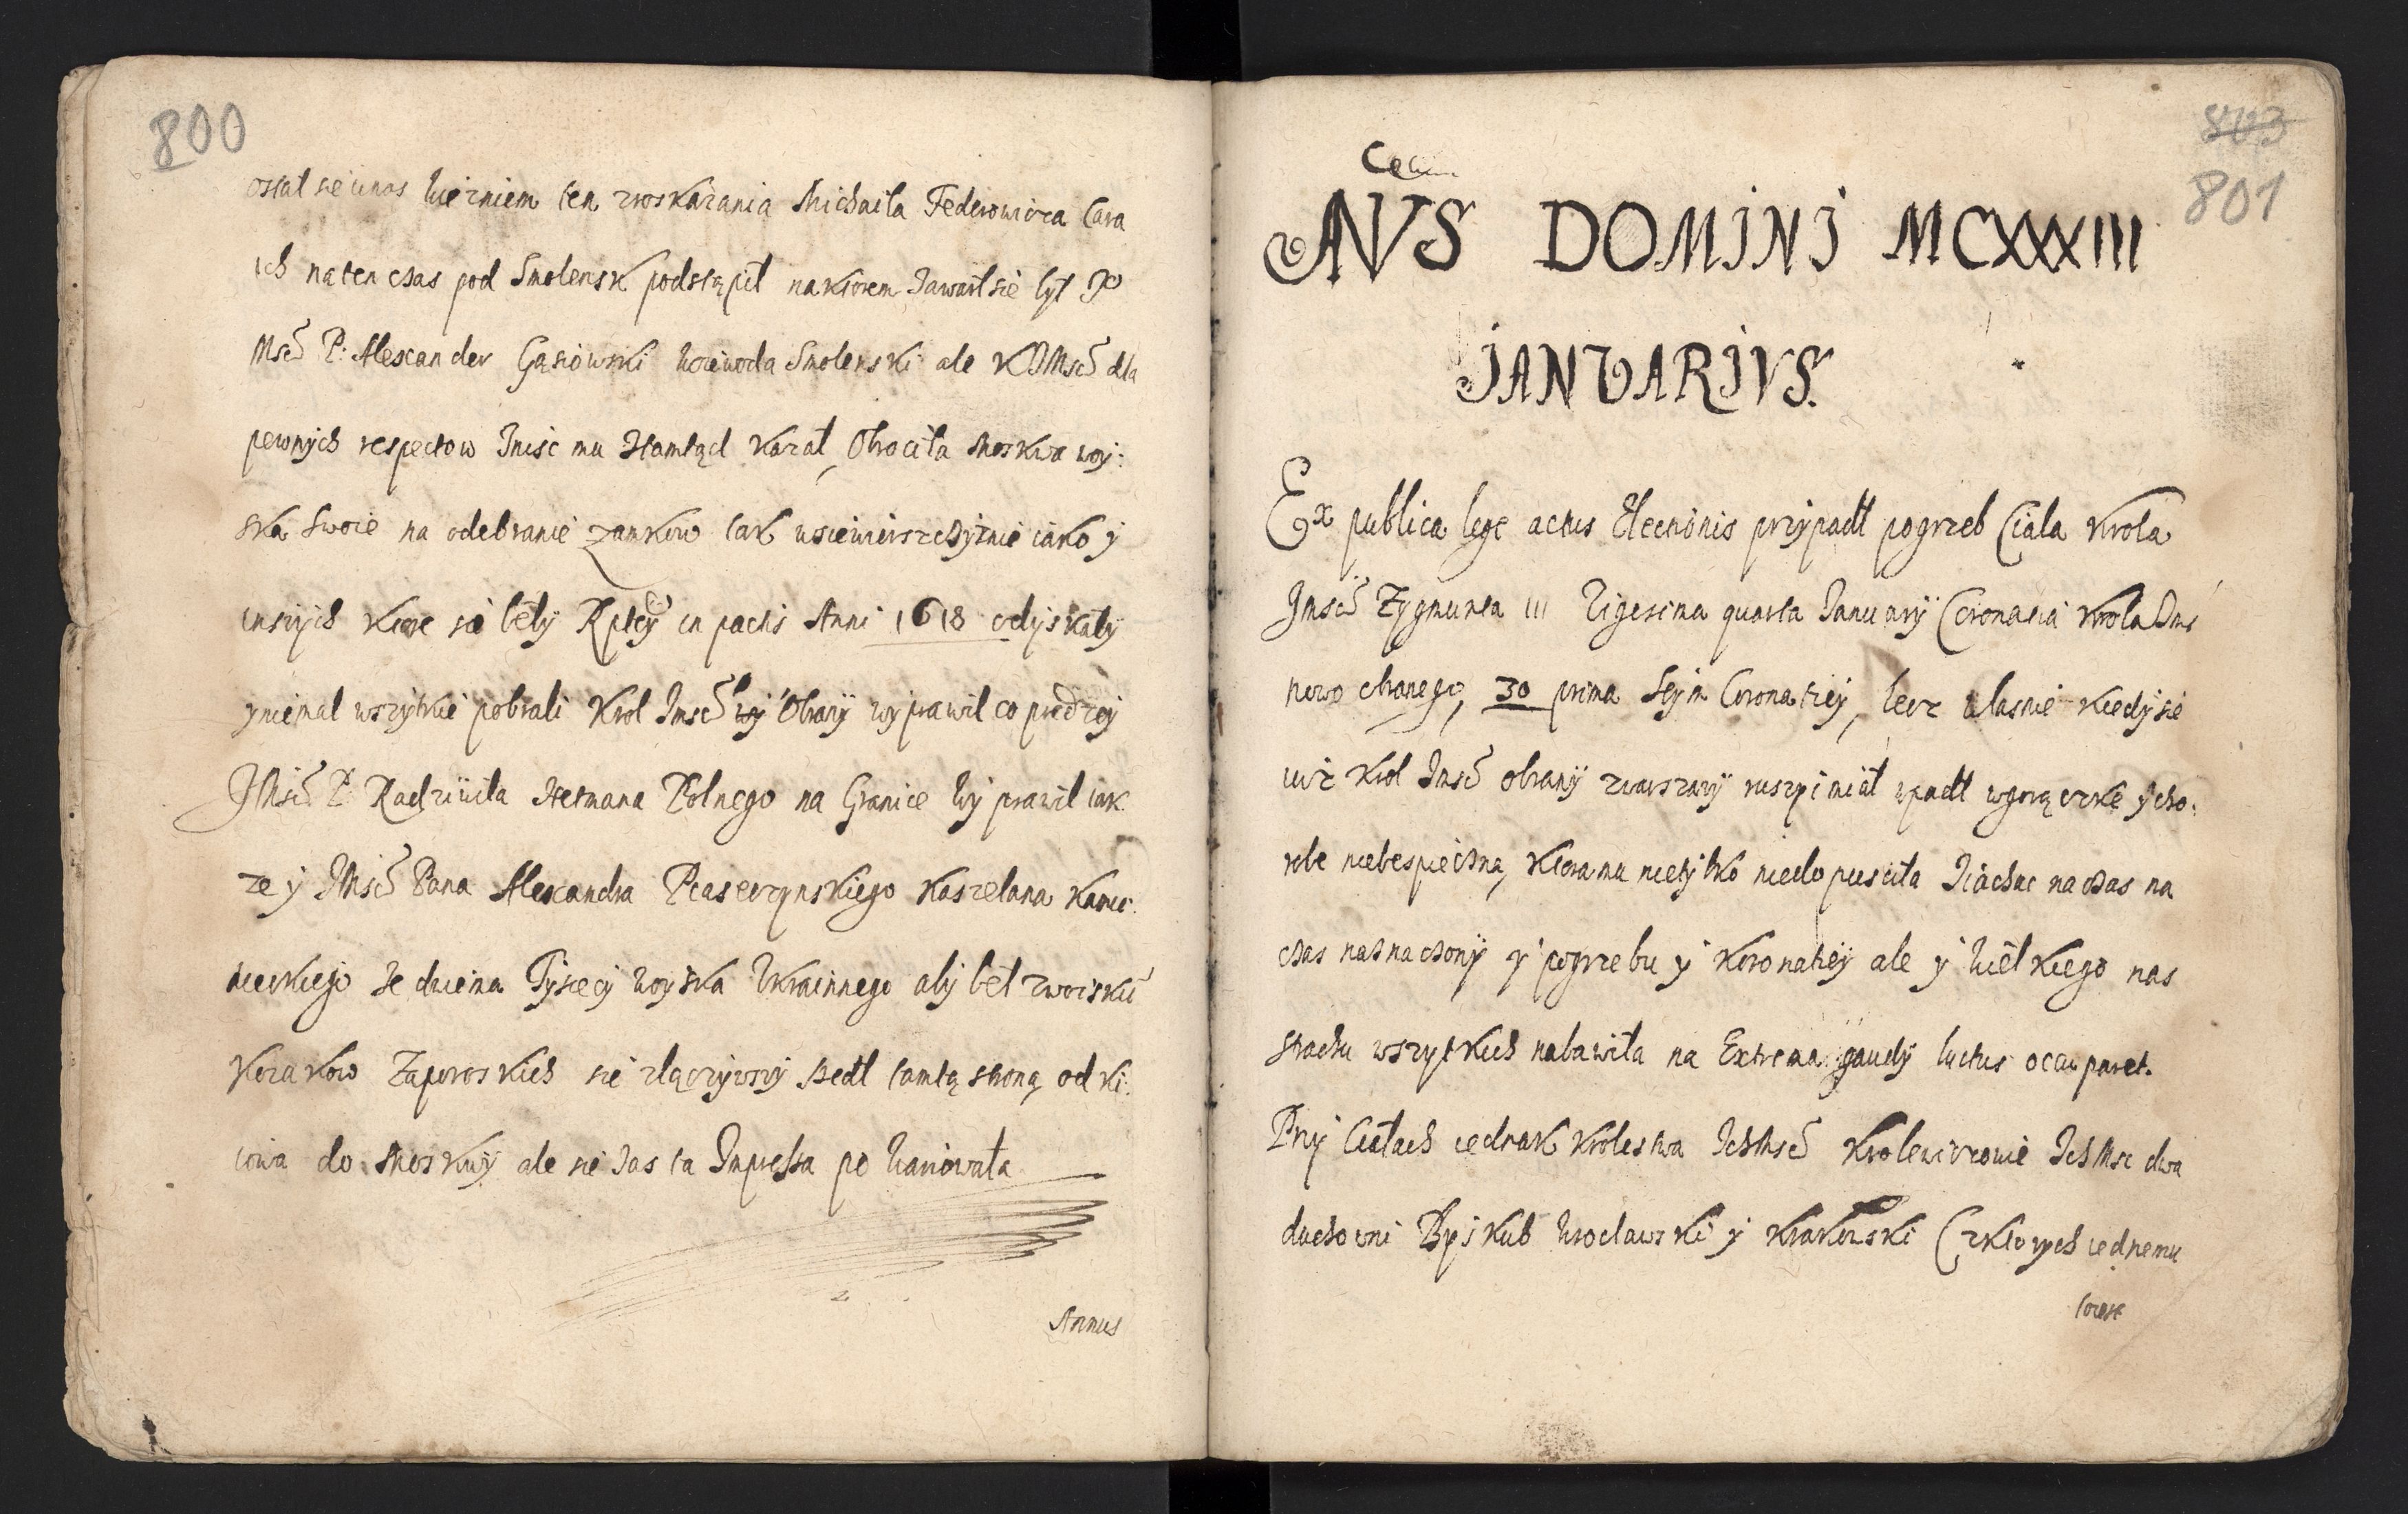 800
ostał sie u nas więzniem ten z roskazania Michaiła Federowicza Cara
ich na ten czas pod Smolensk podstąpił na ktorem zawarł sie był Jo
Msć P: Alexander Gąsiowski woiewoda Smolenski ale KJMsć dla
pewnych respectow znisc mu ztamtąd kazał, Obrociła Moskwa woy:
ska swoie na odebranie zamkow tak w siewierszczyznie iako y
inszych ktore sie beły Rptey in pactis Anni 1618 odyskały
y niemal wszytkie pobrali Krol Jmsć Obrany wyprawił co prędzey
JMsć P. Radziwiła Hetmana Polnego na Granice wyprawił tak
ze y JMsć Pana Alexandra Piaseczynskiego kasztelana kamie:
nieckiego ze dwiema Tysiecy woyska Ukrainnego aby beł z woiskiē
Kozakow Zaporoskich sie złączywszy szedł tamtą stroną od Ki:
iowa do Moskwy ale sie zas ta Impressa po
Annus
803
801
ANVS DOMINI MCXXXIII
IANVARIVS.
Ex publica lege actus Electionis przypadł pogrzeb Ciała Krola
Jmsć Zygmunta III Vigesima quarta January Coronatia Krola Jmsć
nowo obranego, 30 prima Seym Coronatiey, lecz własnie kiedy sie
iuz Krol Jmsć obrany z warszawy ruszyc miał wpadł w gorączke y cho:
robe niebespieczną, ktora mu nie tylko niedopusciła ziachac na czas na
czas naznaczony y pogrzebu y koronatiey ale y wielkiego nas
strachu wszytkich nabawiła na Extrema gaudy luctus occuparet.
Przy Ciałach iednak Krolestwa IchMsć Krolewicowie IchMsc dwa
duchowni Byskub wrocławski y Krakowski (z ktorych iednemu